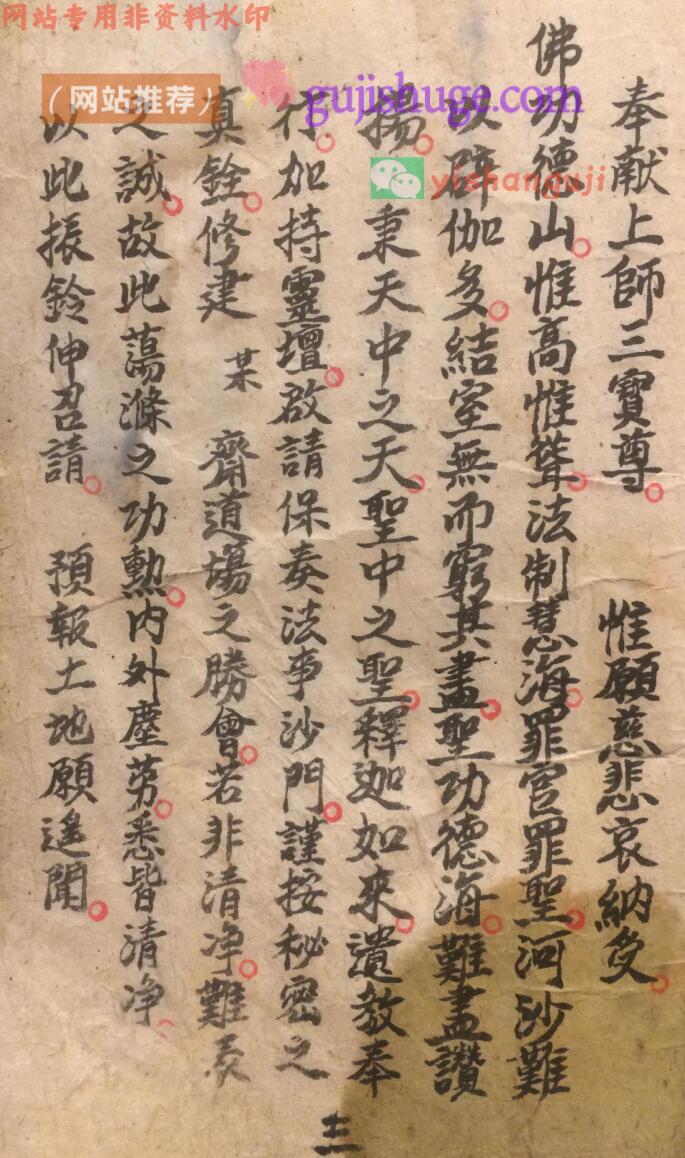 网站专用非资料水印
(网站推荐)
gujishuge.com
yishanguji
奉献上師三寳尊。 惟願慈悲哀納受。
佛功德山。惟高惟聳。法制慧海。罪官罪聖。河沙難
以辟伽多。結室無而窮其盡。聖功德海。難盡讚
揚。 秉天中之天。聖中之聖。釋迦如來。遺教奉
行。加持靈壇。啟請保奏法亊沙門。謹按秘密之
真銓。修建 某 齋道場之勝會。若非清净。難表
之誠。故此蕩滌之功勲。内外塵劳。悉皆清净。
以此振鈴伸召請。 預報土地願遥聞。
十二